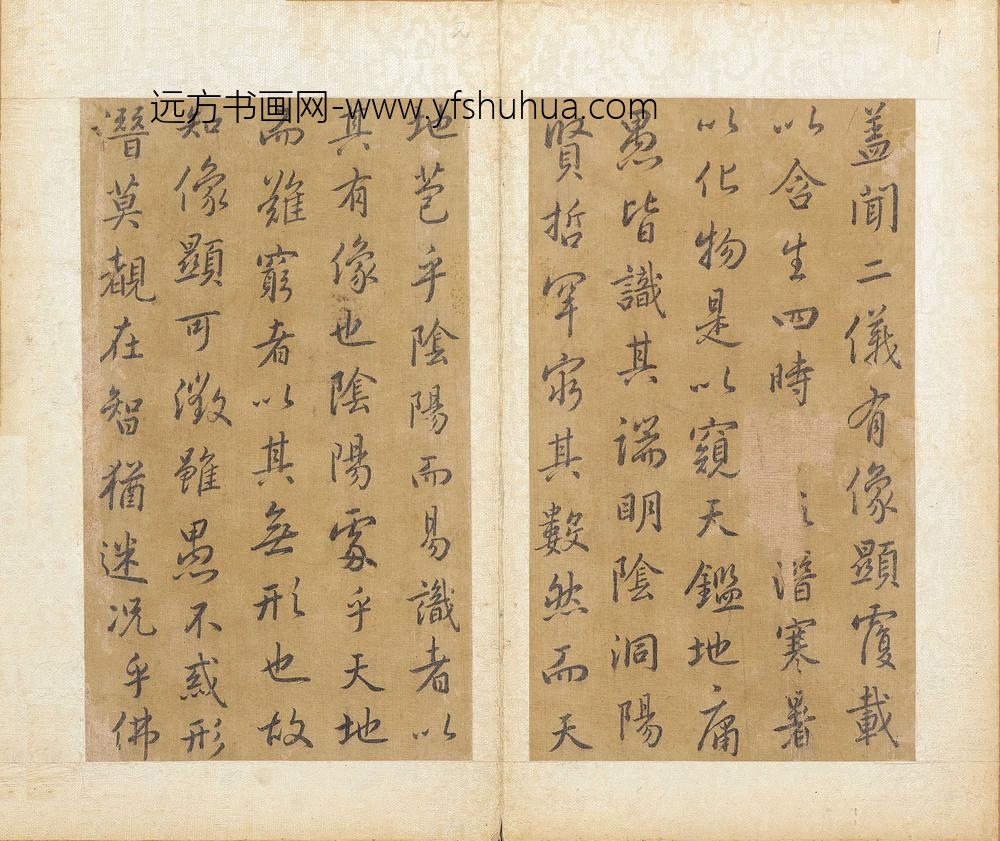 远方书画网-www.yfshuhua.com
1
蓋聞二儀有像顯覆載
以含生四時潛寒暑
以化物是以窺天鑑地庸
愚皆識其端明陰洞陽
賢哲罕窮其數然而天
2
地苞乎陰陽而易識者以
其有像也陰陽處乎天地
而難窮者以其無形也故
知像顯可徵雖愚不惑形
潛莫覩在智猶迷況乎佛